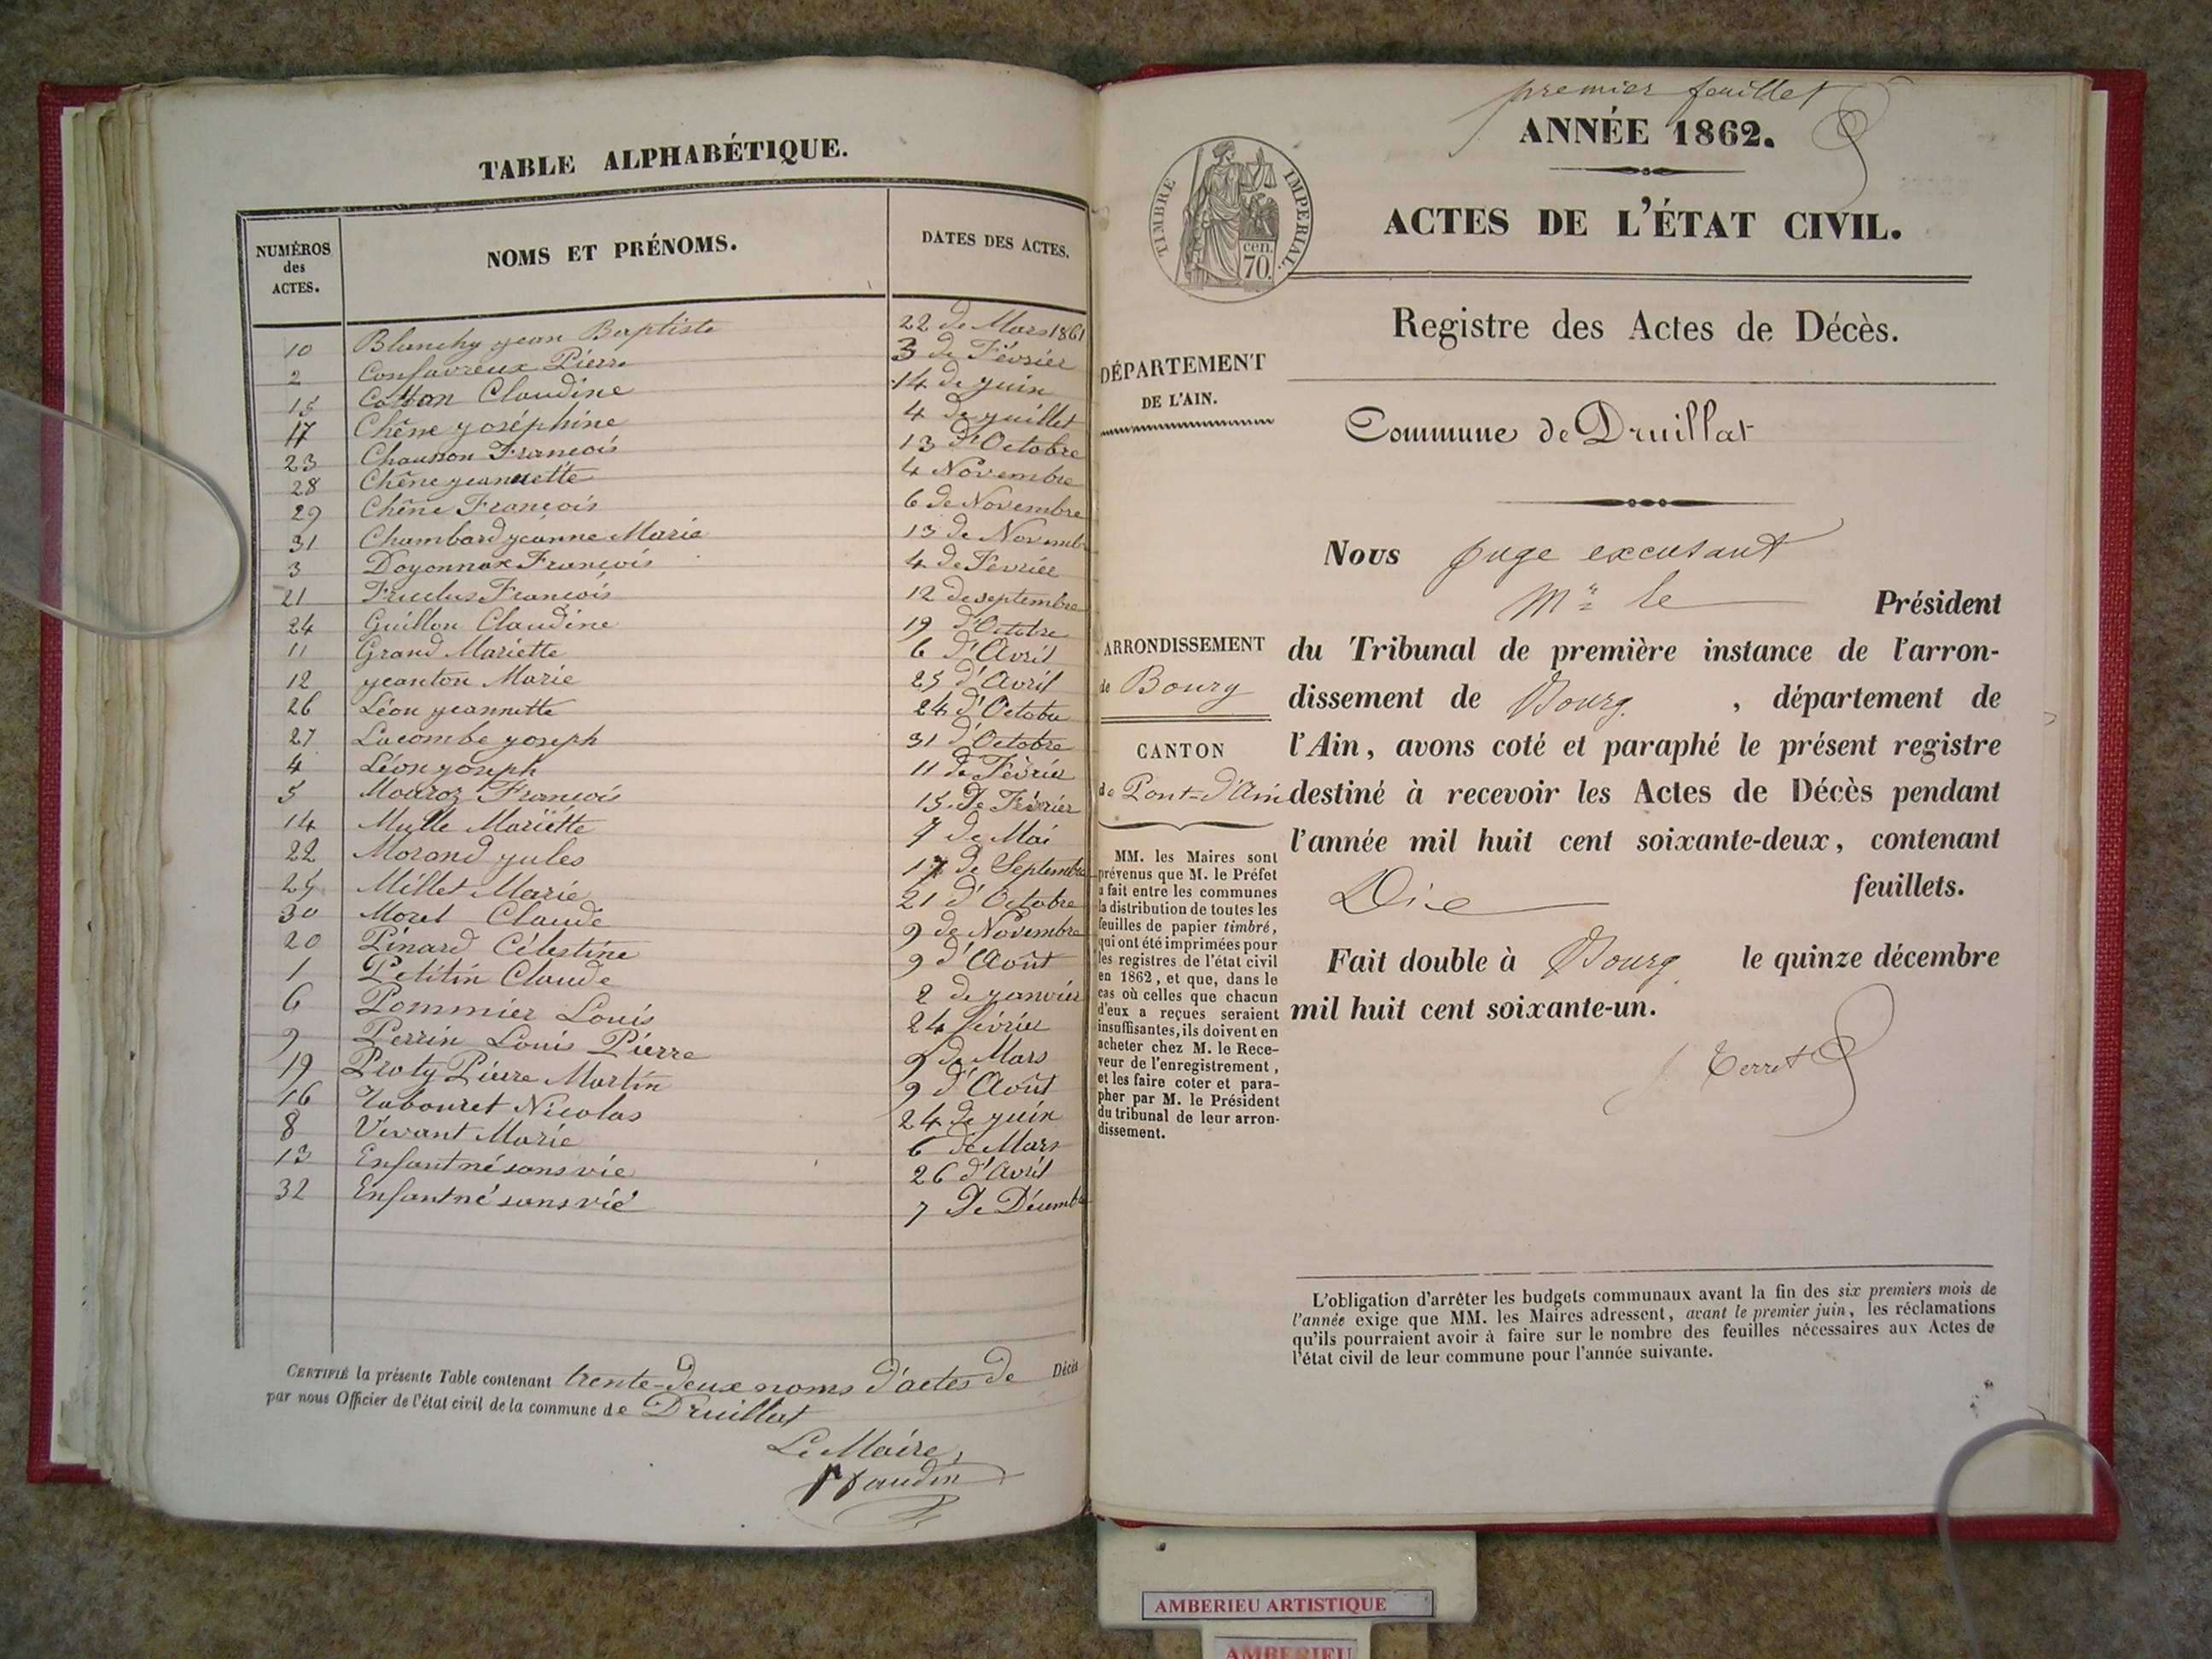 TABLE ALPHABÉTIQUE.
NUMÉROS des ACTES. NOMS ET PRÉNOMS. DATES DES ACTES.
10 Blanchy jean Baptiste 22 de Mars 1861
2 Confavreux Pierre 3 de Février
15 Cottan Claudine 14 de juin
17 Chêne joséphine 4 de juillet
23 Chausson François 13 d'Octobre
28 Chêne jeannette 4 Novembre
29 Chêne François 6 de Novembre
31 Chambard jeanne Marie 13 de Novemb
3 Doyonnax François 4 de Février
21 François 12 de septembre
24 Guillon Claudine 19 d'Octobre
11 Grand Mariette 6 d'Avril
12 jeanton Marie 25 d'Avril
26 Léon jeannette 24 d'Octobre
27 Lacombe joseph 31 d'Octobre
4 Léon joseph 11 de Février
5 Mouroz François 15 de Février
14 Mulle Mariette 7 de Mai
22 Morand jules 17 de Septembre
25 Millet Marie 21 d'Octobre
30 Morel Claude 9 de Novembre
20 Pinard Célestine 9 d'Août
1 Petitin Claude 2 de janvier
6 Pommier Louis 24 février
9 Perrin Louis Pierre 9 de Mars
19 Proty Pierre Martin 9 d'Août
16 Tabouret Nicolas 24 de juin
8 Vivant Marie 6 de Mars
13 Enfant né sans vie 26 d'Avril
32 Enfant né sans vie 7 de Décembre
CERTIFIÉ la présente Table contenant trente-deux noms d'actes de Décès
par nous Officier de l'état civil de la commune de Druillat
Le Maire,
premier feuillet
ANNÉE 1862.
TIMBRE IMPERIAL.
cen.
70.
ACTES DE L'ÉTAT CIVIL.
Registre des Actes de Décès.
DÉPARTEMENT
DE L'AIN.
Commune de Druillat
ARRONDISSEMENT
de Bourg
CANTON
de Pont-d'Ain
MM. les Maires sont
prévenus que M. le Préfet
a fait entre les communes
la distribution de toutes les
feuilles de papier timbré,
qui ont été imprimées pour
les registres de l'état civil
en 1862, et que, dans le
cas où celles que chacun
d'eux a reçues seraient
insuffisantes, ils doivent en
acheter chez M. le Rece-
veur de l'enregistrement,
et les faire coter et para-
pher par M. le Président
du tribunal de leur arron-
dissement.
Nous juge excusant
Mr le Président
du Tribunal de première instance de l'arron-
dissement de Bourg, département de
l'Ain, avons coté et paraphé le présent registre
destiné à recevoir les Actes de Décès pendant
l'année mil huit cent soixante-deux, contenant
Dix feuillets.
Fait double à Bourg le quinze décembre
mil huit cent soixante-un.
Terret
L'obligation d'arrêter les budgets communaux avant la fin des six premiers mois de
l'année exige que MM. les Maires adressent, avant le premier juin, les réclamations
qu'ils pourraient avoir à faire sur le nombre des feuilles nécessaires aux Actes de
l'état civil de leur commune pour l'année suivante.
AMBERIEU ARTISTIQUE
AMBERIEU